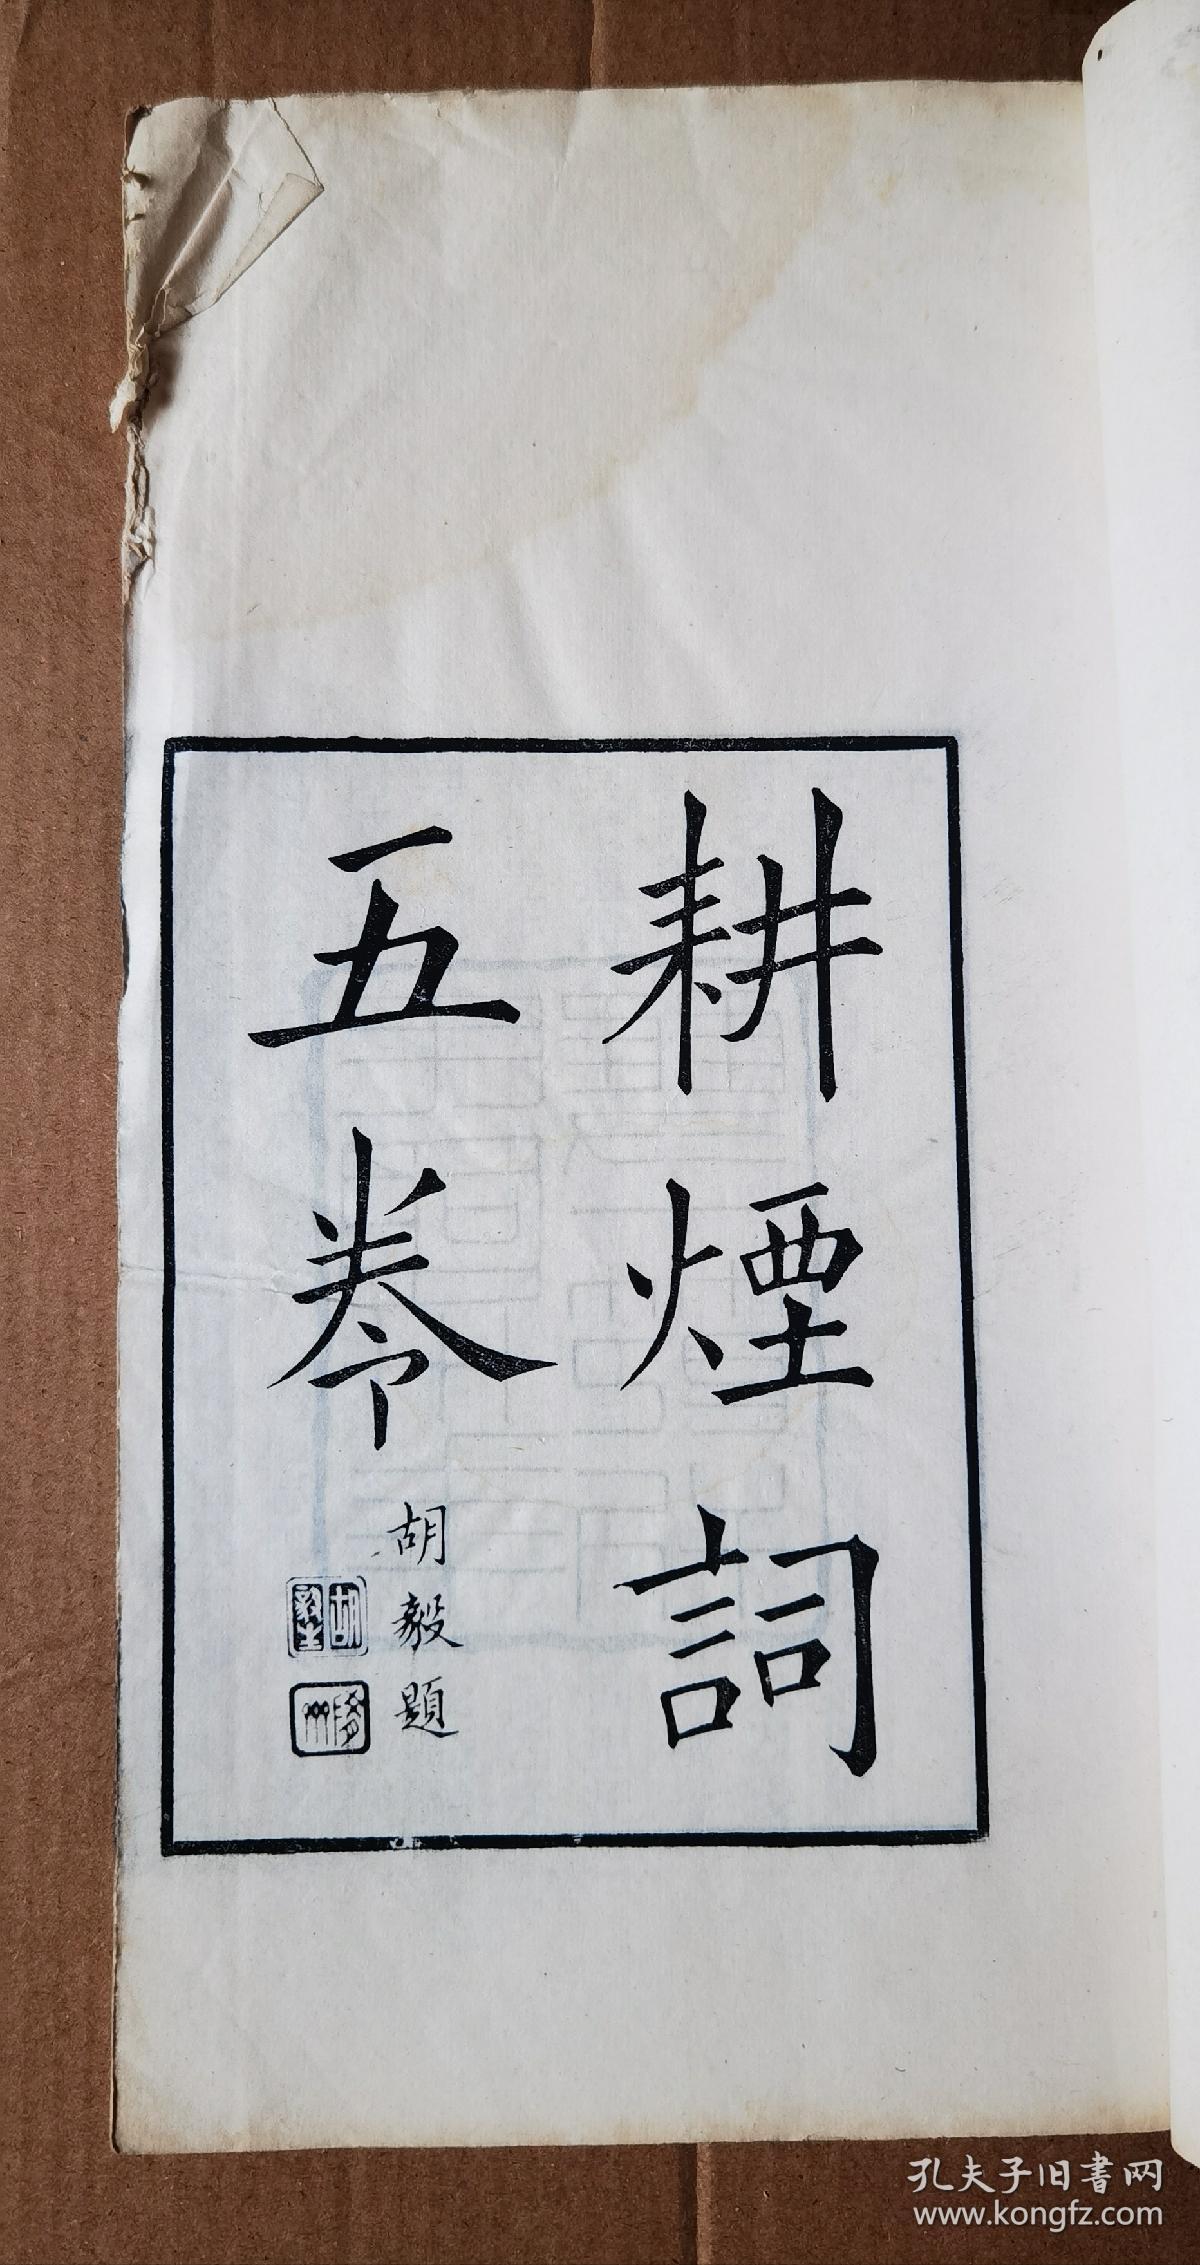 耕煙詞
五卷
胡毅題
孔夫子旧書网
www.kongfz.com